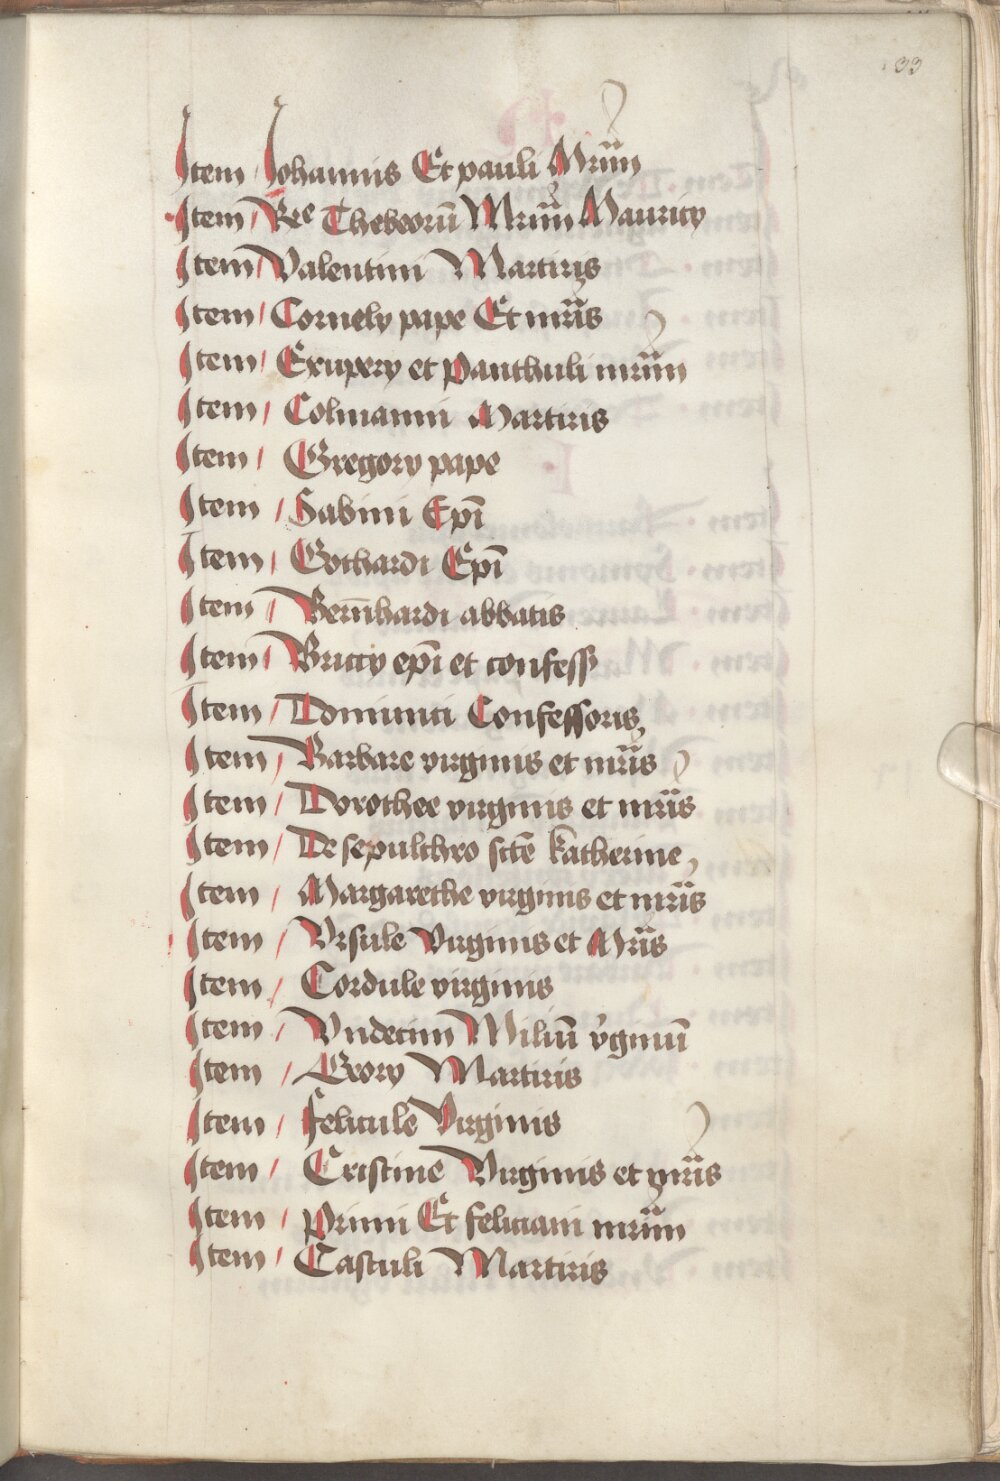 33
Item Johannis Et pauli Mrm̄
Item Rēe Thebeorū Mrm̄ Mauricy
Item Valentini Martiris
Item Cornely pape Et mrīs
Item Exupery et Panthuli mrm̄
Item Colmanni Martiris
Item Gregory pape
Item Sabini Epī
Item Gothardi Epī
Item Bern̄hardi abbatis
Item Briccy epī et confess
Item Dominici Confessoris
Item Barbare virginis et mrīs
Item Dorothee virginis et mrīs
Item De sepulchro sctē katherine
Item Margarethe virginis et mrīs
Item Vrsule Virginis et Mrīs
Item Cordule virginis
Item Vndecim Miliū v̓ginū
Item Geory Martiris
Item Felicule Virginis
Item Cristine Virginis et mrīs
Item Primi Et feliciani mrm̄
Item Castuli Martiris